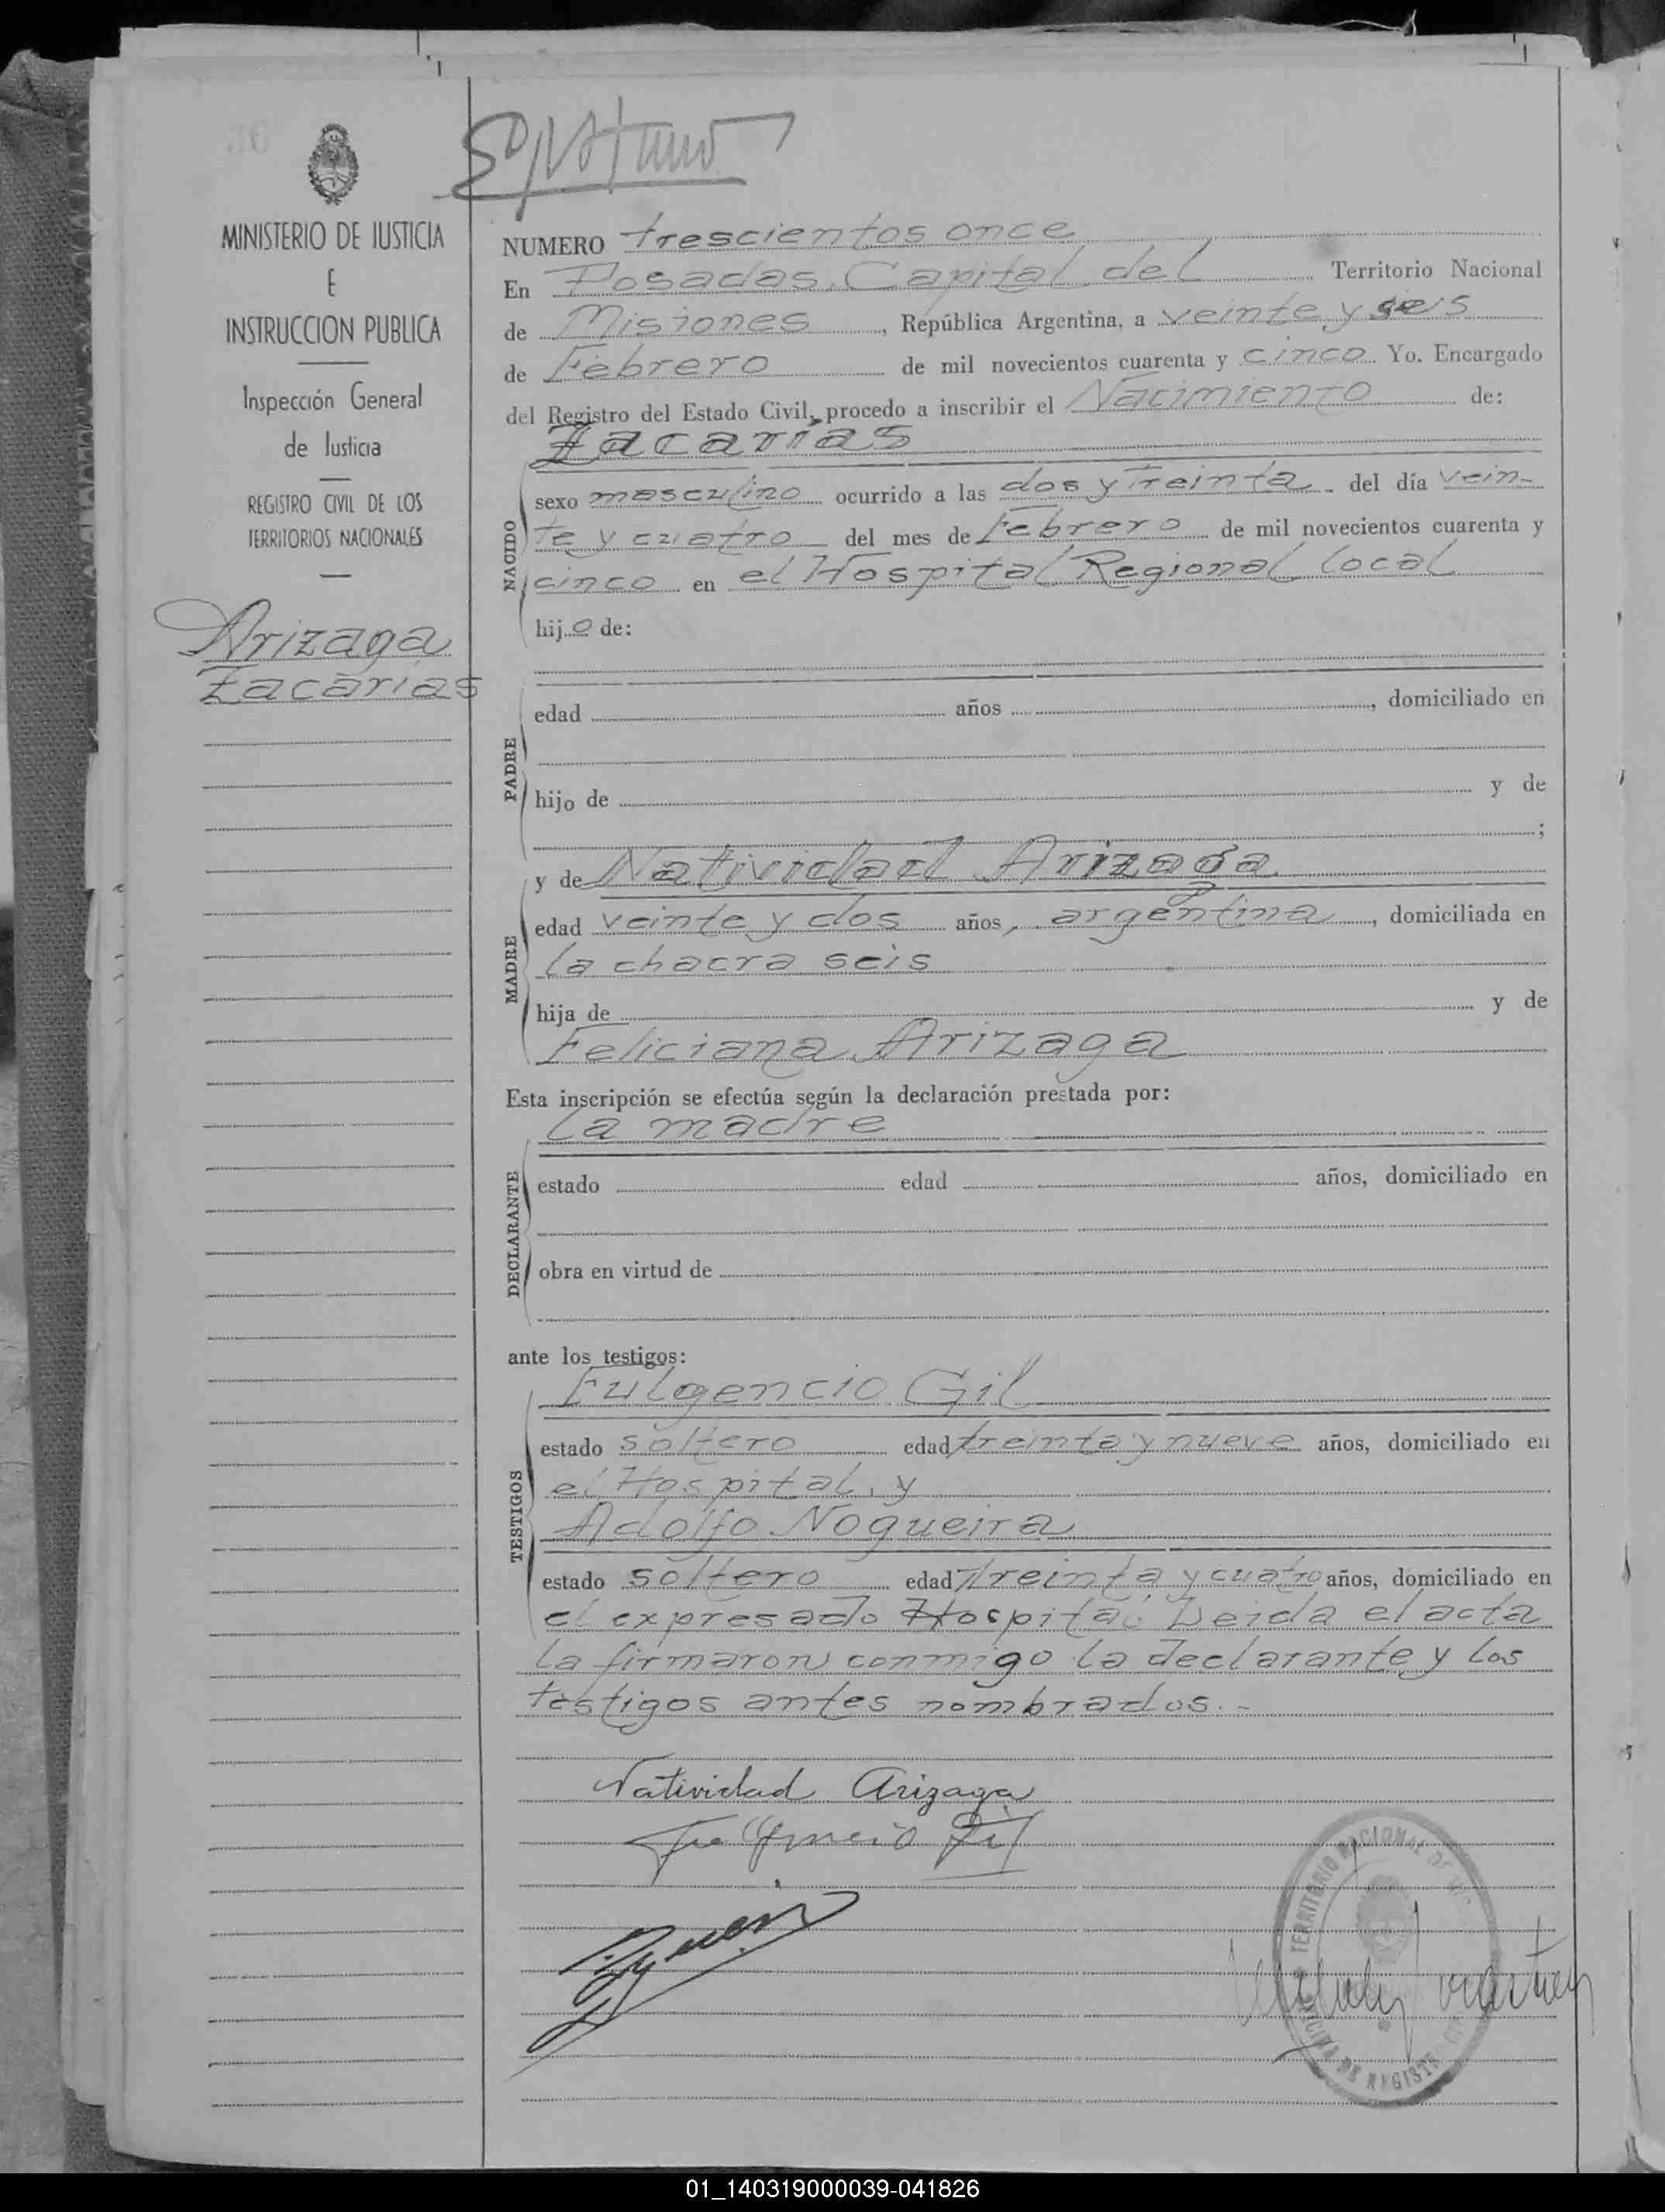 MINISTERIO DE JUSTICIA
E
INSTRUCCION PUBLICA
Inspección General
de Justicia
REGISTRO CIVIL DE LOS
TERRITORIOS NACIONALES
Arizaga
Zacarias
NUMERO trescientos once
En Posadas, Capital del Territorio Nacional
de Misiones, República Argentina, a veinte y seis
de Febrero de mil novecientos cuarenta y cinco Yo, Encargado
del Registro del Estado Civil, procedo a inscribir el Nacimiento de:
Zacarias
NACIDO
sexo masculino ocurrido a las dos y treinta del día vein-
te y cuatro del mes de Febrero de mil novecientos cuarenta y
cinco en el Hospital Regional local
hijo de:
PADRE
edad años , domiciliado en
hijo de y de
;
y de Natividad Arizaga
MADRE
edad veinte y dos años, argentina, domiciliada en
la chacra seis
hija de y de
Feliciana Arizaga
Esta inscripción se efectúa según la declaración prestada por:
la madre
DECLARANTE
estado edad años, domiciliado en
obra en virtud de
ante los testigos:
Fulgencio Gil
TESTIGOS
estado soltero edad treinta y nueve años, domiciliado en
el Hospital, y
Adolfo Nogueira
estado soltero edad treinta y cuatro años, domiciliado en
el expresado Hospital. Leida el acta
la firmaron conmigo la declarante y los
testigos antes nombrados.-
Natividad Arizaga
Fulgencio Gil
TERRITORIO NACIONAL DE
OFICINA DE REGISTRO
01_140319000039-041826